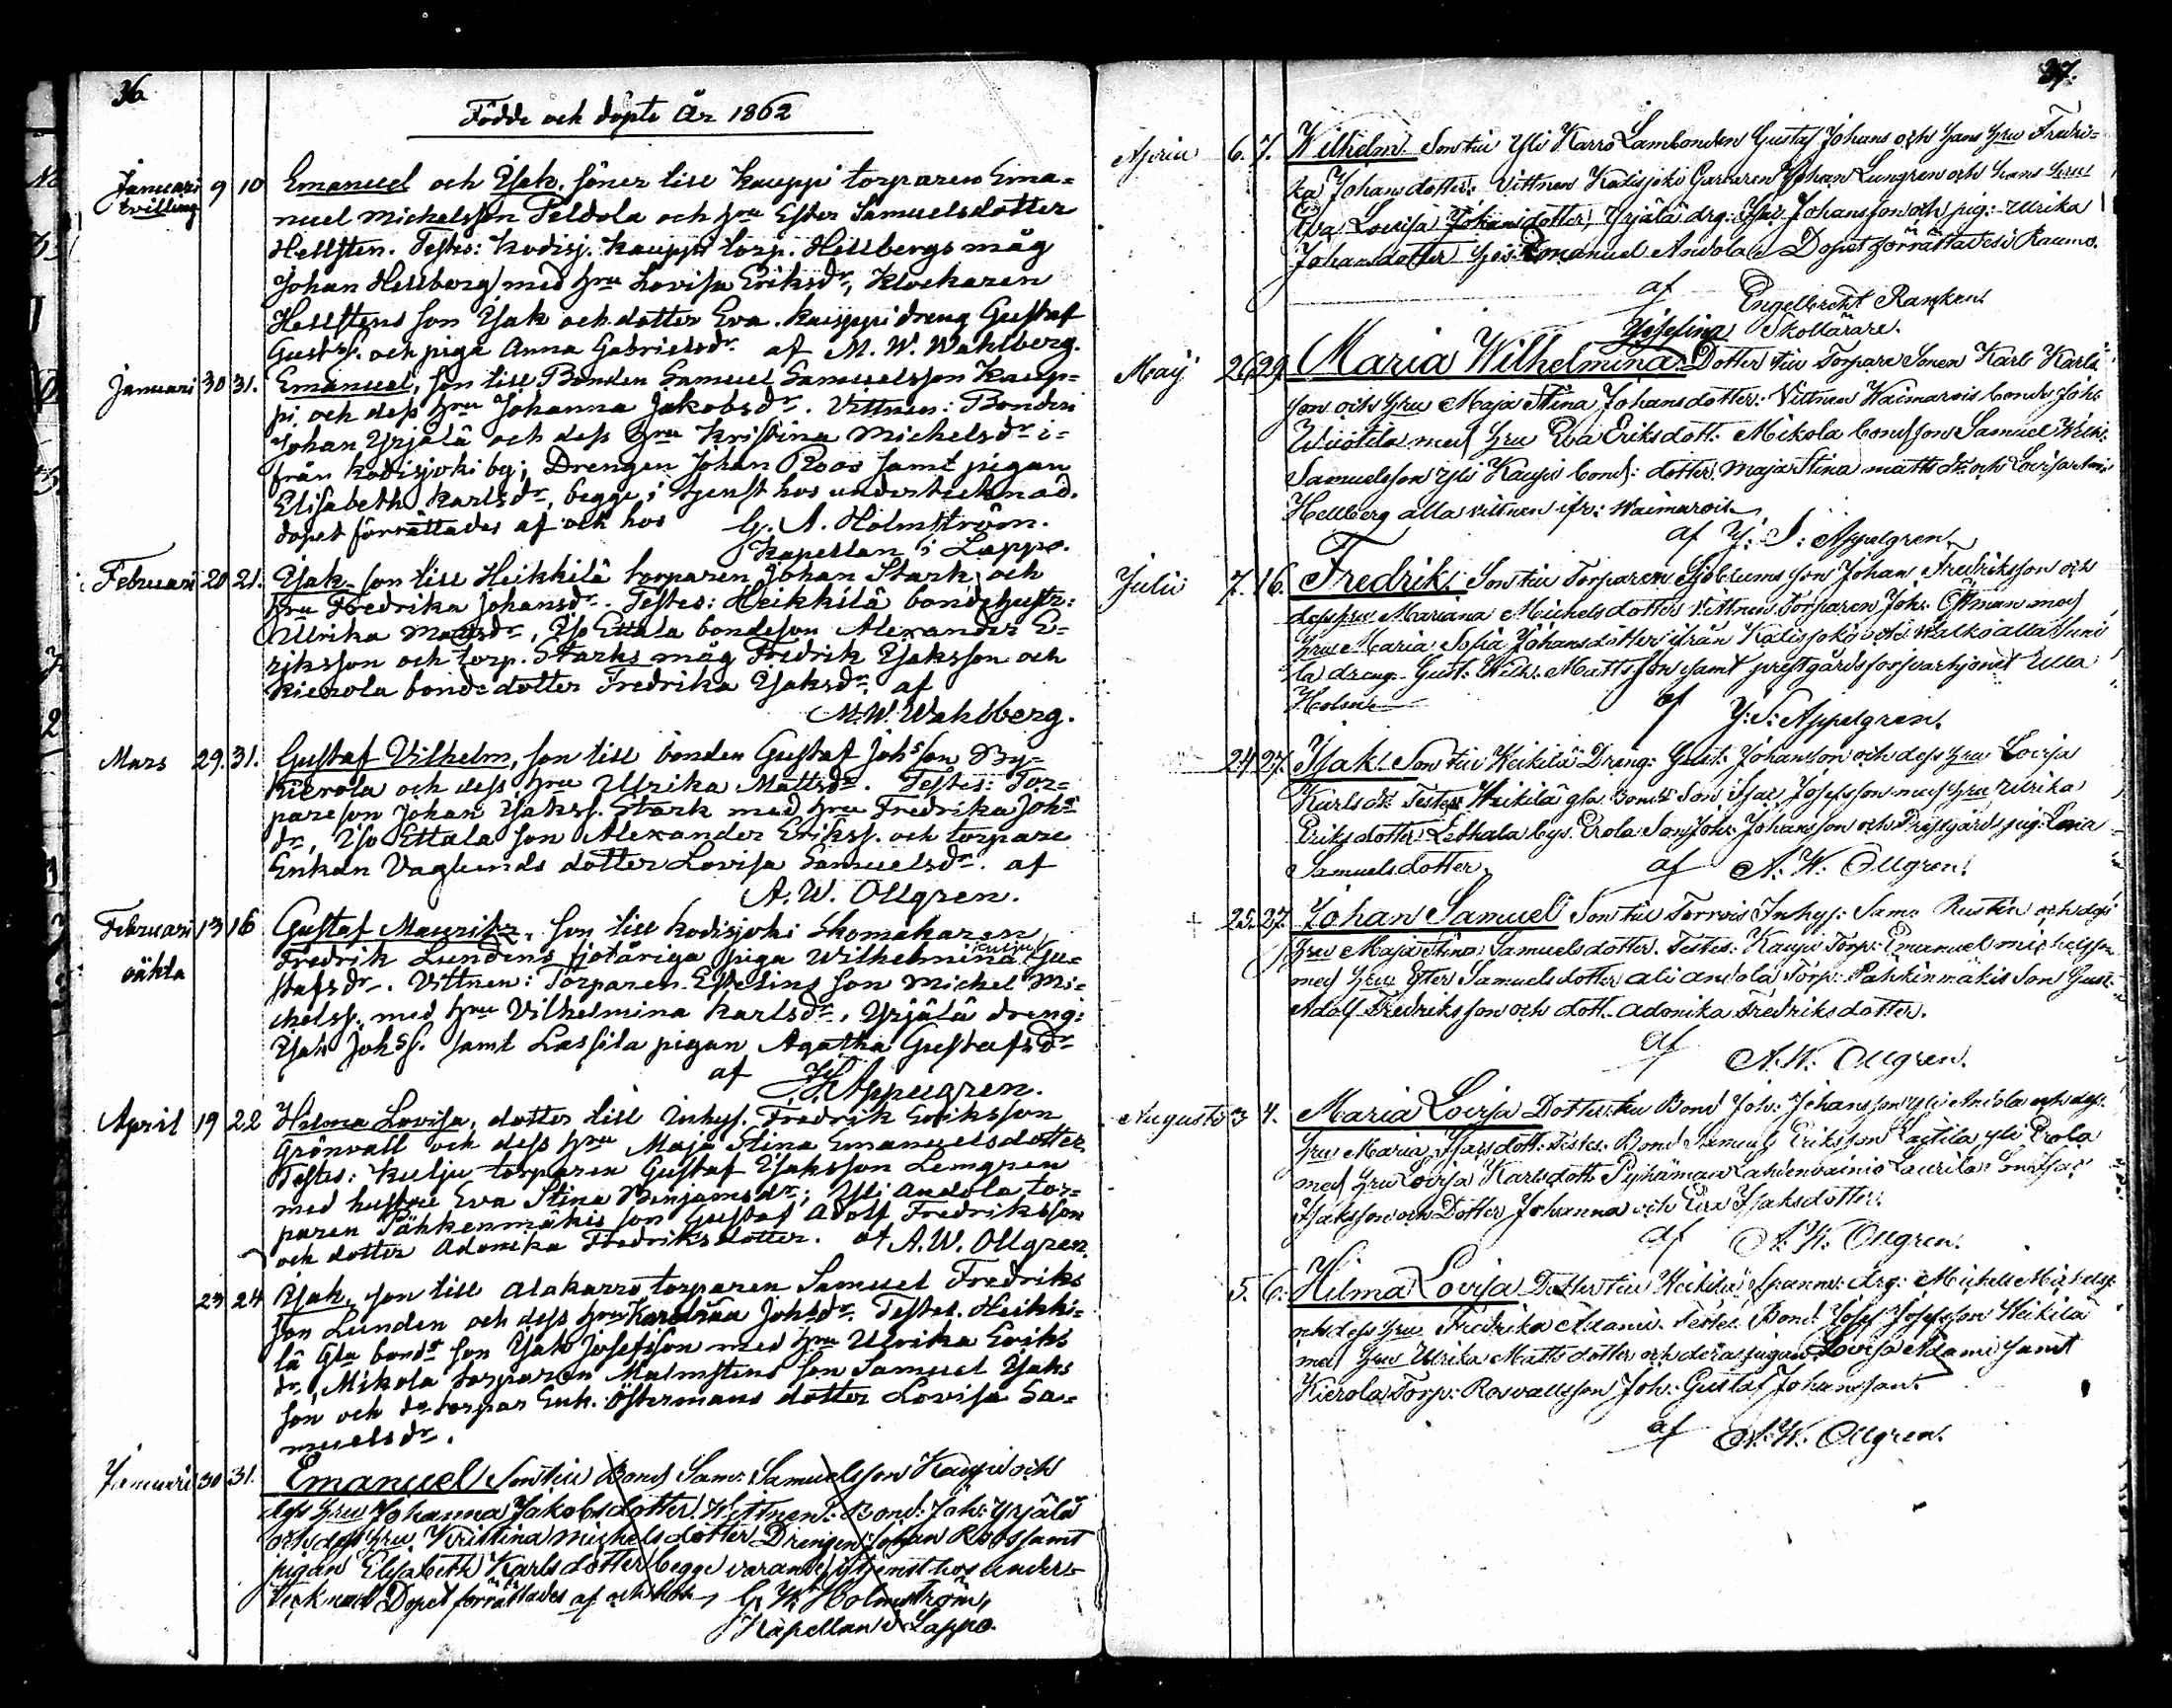 36
Födde och döpte År 1862
Januari 9 10 Emanuel och Isak, söner till Kauppi torparen Ema=
tvilling nuel Michelsson Peldola och hru Ester Samuelsdotter
Hellsten. Testes: Kodisj. Kauppi torp. Hellbergs måg
Johan Hellberg med hru Lovisa Eriksdr, Klockaren
Hellstens son Isak och dotter Eva. Kauppi dreng Gustaf
Gustfs. och piga Anna Gabrielsdr. af M. W. Wahlberg.
Januari 30 31. Emanuel, son till Bonden Samuel Samuelsson Kaup=
pi och dess hru Johanna Jakobsdr. Vittnen: Bonden
Johan Yrjälä och dess hru Kristina Michelsdr i=
från Kodisjoki by; Drengen Johan Roos samt pigan
Elisabeth Karlsdr, begge i tjenst hos undertecknad.
Dopet förrättades af och hos G. A. Holmström.
Kapellan i Lappo.
Februari 20 21. Isak, son till Heikkilä torparen Johan Stark och
hru Fredrika Johansdr. Testes: Heikkilä bonde hustr:
Ullrika Mattsdr, Iso Ettala bondeson Alexander E=
riksson och torp. Starks måg Fredrik Isaksson och
Kierola bonde dotter Fredrika Isaksdr. af
M. W. Wahlberg.
Mars 29. 31. Gustaf Vilhelm, son till bonden Gustaf Johsson By=
Kierola och dess hru Ulrika Mattsdr. Testes: Tor=
pareson Johan Isakss. Stark med hru Fredrika Johs
dr, Iso Ettala son Alexander Erikss. och torpare
Enkan Vaglunds dotter Lovisa Samuelsdr. af
A. W. Ollgren.
Februari 13 16 Gustaf Mauritz, son till Kodisjoki Skomakaren
oäkta Fredrik Lundens fjotåriga piga Wilhelmina Gu=
stafsdr. Vittnen: Torparen Estelins son Michel Mi=
chelss. med hru Vilhelmina Karlsdr, Yrjälä dreng:
Isak Johss. samt Lassila pigan Agatha Gustafsdr
af J. S. Appelgren.
April 19 22 Hilma Lovisa, dotter till Inhys. Fredrik Eriksson
Grönvall och dess hru Maja Stina Emanuelsdotter
Testes: Kulju torparen Gustaf Isaksson Lemgren
med hustru Eva Stina Benjamsdr; Yli Andola tor=
paren Pähkenmäkis son Gustaf Adolf Fredriksson
och dotter Adamika Fredriksdotter. af A. W. Ollgren
23 24 Isak, son till Alakarro torparen Samuel Fredriks
son Lunden och dess hru Karolina Johsdr. Testes. Heikki=
lä Gla bonds son Isak Josefsson med hru Ulrika Eriks
dr, Mikola torparen Malmstens son Samuel Isaks
son och do torpar Enk. Östermans dotter Lovisa Sa=
muelsdr.
Januari 30 31. Emanuel Son till Bond Sam: Samuelsson Kauppi och
dess hru Johanna Jakobsdotter. Wittnen: Bond: Joh: Yrjälä
och dess hru Kristina Michelsdotter Drengen Johan Roos samt
pigan Elisabeth Karlsdotter begge varande i tjenst hos under=
tecknad Dopet förrättades af och hos G. A. Holmström,
Kapellan i Lappo.
37.
April 6. 7. Wilhelm Son till Yli Karro Lambonden Gustaf Johans och hans hru Fredri=
ka Johansdotter. Vittnen Kodisjoki Garfaren Johan Lungren och hans hru
Eva Lovisa Johansdotter, Yrjälä drg: Isac Johansson och pig: Ulrika
Johansdotter hos Emanuel Andola Dopet förrättades i Raumo.
af Engelbrekt Rancken
Skollärare.
Josefina
May 26 29 Maria Wilhelmina Dotter till Torpare Sonen Karl Karls
son och hru Maja Stina Johansdotter: Vittnen Waimarois bonde Joh:
Uuotila med hru Eva Eriksdott: Mikola bondson Samuel Wilh:
Samuelsson Yli Kaupi bond: dotter Maja Stina Mattsdr och Lovisa
Hellberg alla vittnen ifr: Waimarois
af J: S: Appelgren.
Julii 7. 16. Fredrik Son till Torparen Sjöblums son Johan Fredriksson och
dess hru Mariana Michelsdotter Vittnen Torparen Joh: Östman med
hru Maria Sofia Johansdotter ifrån Kodisjoki och
la dreng Gust: Wilh: Mattsson samt prestgårds Ulla
Holm
af J: S: Appelgren.
24 27. Isak Son till Heikilä Dreng: Gust: Johansson och dess hru Lovisa
Karlsdr. Testes Heikilä gla Bonds Son Isac Josefsson med hru Ulrika
Eriksdotter Lethala bys Erola Son Joh: Johansson och Prestgårds pig: Lovisa
Samuelsdotter. af A. W: Ollgren.
+ 25. 27. Johan Samuel Son till Torrois Inhys: Sam: Rustin och dess
hru Maja Stina Samuelsdotter. Testes: Kaupi Torp: Emanuel Michelsson
med hru Ester Samuelsdotter Ali Andola Torp: Pähkinmäkis Son Gust:
Adolf Fredriksson och dott. Adonika Fredriksdotter.
af A. W. Ollgren.
Augusti 3 4. Maria Lovisa Dotter till Bond Joh: Johansson Yli Andola och dess
hru Maria Isacsdott: Testes: Bond Samuel Eriksson Laitila Yli Erola
med hru Lovisa Karlsdott. Pyhämaa Lahdenvainio Laurila Son Isac
Isaksson och Dotter Johanna och Eva Isaksdotter.
af A. W. Ollgren.
5. 6. Hilma Lovisa Dotter till Heikilä Spannm: drg: Michel Michelss
och dess hru Fredrika Adami. Testes Bond: Josef Josefsson Heikilä
med hru Ulrika Mattsdotter och deras pigan Lovisa Adami samt
Kierola Torp: Rosvallsson Joh: Gustaf Johansson.
af A. W. Ollgren.